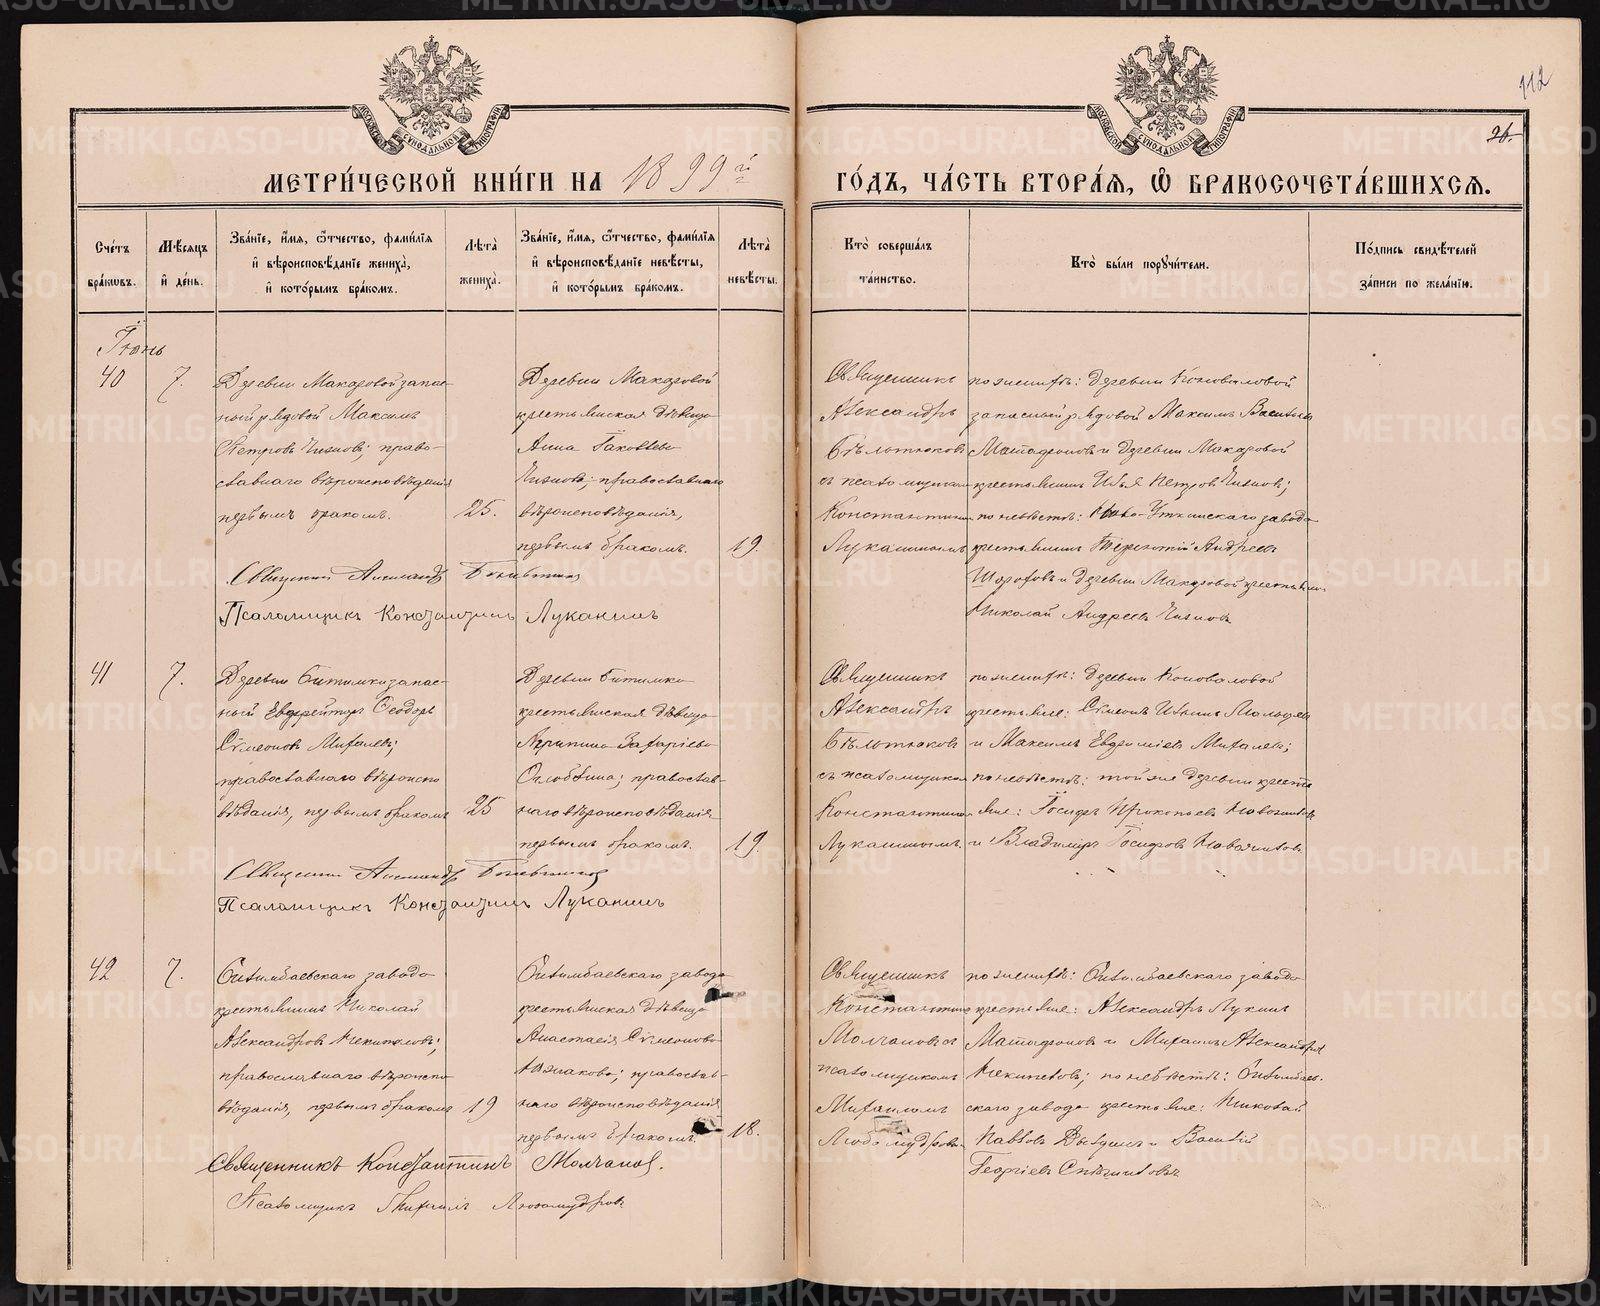 112
26.
МЕТРИ́ЧЕСКОЙ КНИ́ГИ НА 1899й
ГО́ДЪ, ЧА́СТЬ ВТОРА́Я, Ѿ БРАКОСОЧЕТА́ВШИХСЯ.
Сче́тъ бра́кωвъ.
Мѣ́сяцъ и҆ де́нь.
Зва́нїе, и҆́мя, ѻ҆́тчество, фами́лїя
и҆ вѣроисповѣ́данїе жениха̀,
и҆ кото́рымъ бра́комъ.
Лѣ́та жениха̀.
Зва́нїе, и҆́мя, ѻ҆́тчество, фами́лїя
и҆ вѣроисповѣ́данїе невѣ́сты,
и҆ кото́рымъ бра́комъ.
Лѣ́та невѣ́сты.
Кто̀ соверша́лъ
та́инство.
Кто̀ бы́ли поручи́тели.
По́дпись свидѣ́телей
за́писи по жела́нїю.
Іюнь
40
7.
Деревни Макаровой запас-
ный рядовой Максимъ
Петровъ Чижовъ; право-
славнаго вѣроисповѣданія
первымъ бракомъ.
25.
Деревни Макаровой
крестьянская дѣвица
Анна Іаковлева
Чижова; православнаго
вѣроисповѣданія,
первымъ бракомъ.
19.
Священникъ
Александръ
Бѣльтюковъ
съ псаломщикомъ
Константиномъ
Луканинымъ
по женихѣ: деревни Коноваловой
запасный рядовой Максимъ Васильевъ
Матафоновъ и деревни Макаровой
крестьянинъ Илья Петровъ Чижовъ;
по невѣстѣ: Ново-Уткинскаго завода
крестьянинъ Терентій Андреевъ
и деревни Макаровой крестьянинъ
Николай Андреевъ Чижовъ
Священникъ Александръ Бѣльтюковъ
Псаломщикъ Константинъ Луканинъ
41
7.
Деревни Битимки запас-
ный Ефрейторъ Ѳеодоръ
Сѵмеоновъ Михалевъ;
православнаго вѣроиспо
вѣданія, первымъ бракомъ
25
Деревни Битимки
крестьянская дѣвица
Агрипина Захаріева
православ-
наго вѣроисповѣданія
первымъ бракомъ.
19.
Священникъ
Александръ
Бѣльтюковъ
съ псаломщикомъ
Константиномъ
Луканинымъ
по женихѣ: деревни Коноваловой
крестьяне: Сѵмеонъ
и Максимъ Евфиміевъ Михалевъ;
по невѣстѣ: той же деревни крестья
яне: Іосифъ Прокопьевъ
и Владиміръ Іосифовъ
Священникъ Александръ Бѣльтюковъ
Псаломщикъ Константинъ Луканинъ
42
7.
Билимбаевскаго завода
крестьянинъ Николай
Александровъ
православнаго вѣроиспо-
вѣданія, первымъ бракомъ
19
Билимбаевскаго завода
крестьянская дѣвица
Анастасія Сѵмеонова
православ-
наго вѣроисповѣданія
первымъ бракомъ.
18.
Священникъ
Константинъ
Молчановъ съ
псаломщикомъ
Михаиломъ
Любомудровымъ
по женихѣ: Билимбаевскаго завода
крестьяне: Александръ Лукинъ
Матафоновъ и Михаилъ Александровъ
по невѣстѣ: Билимбаев-
скаго завода крестьяне: Николай
Павловъ и Василій
Георгіевъ
Священникъ Константинъ Молчановъ.
Псаломщикъ Михаилъ Любомудровъ.
METRIKI.GASO-URAL.RU